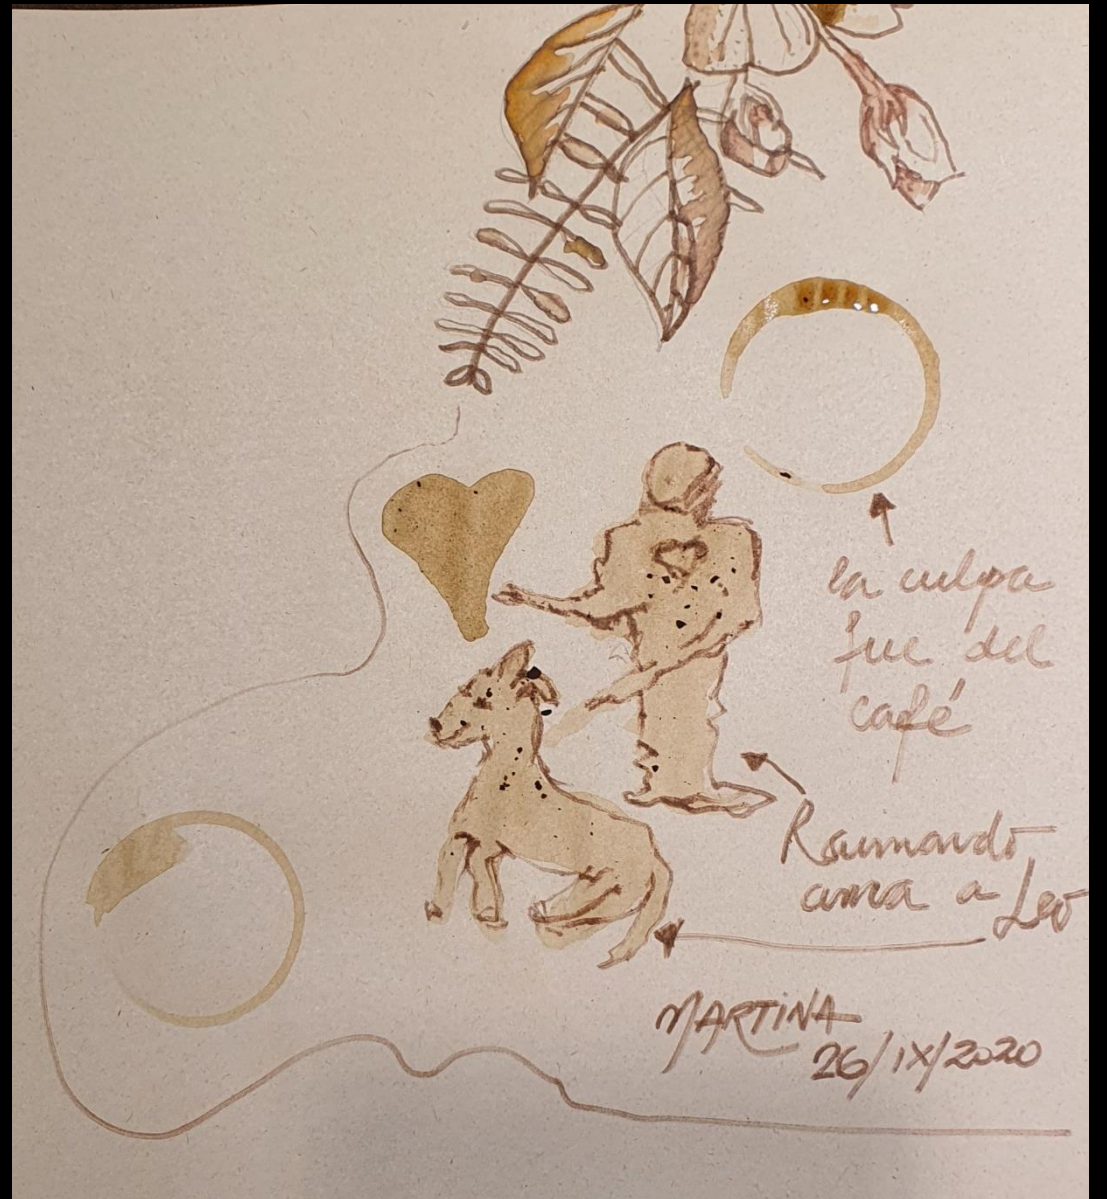 la culpa
fue del
café
Raimundo
ama a Leo
MARTINA
26/IX/2020